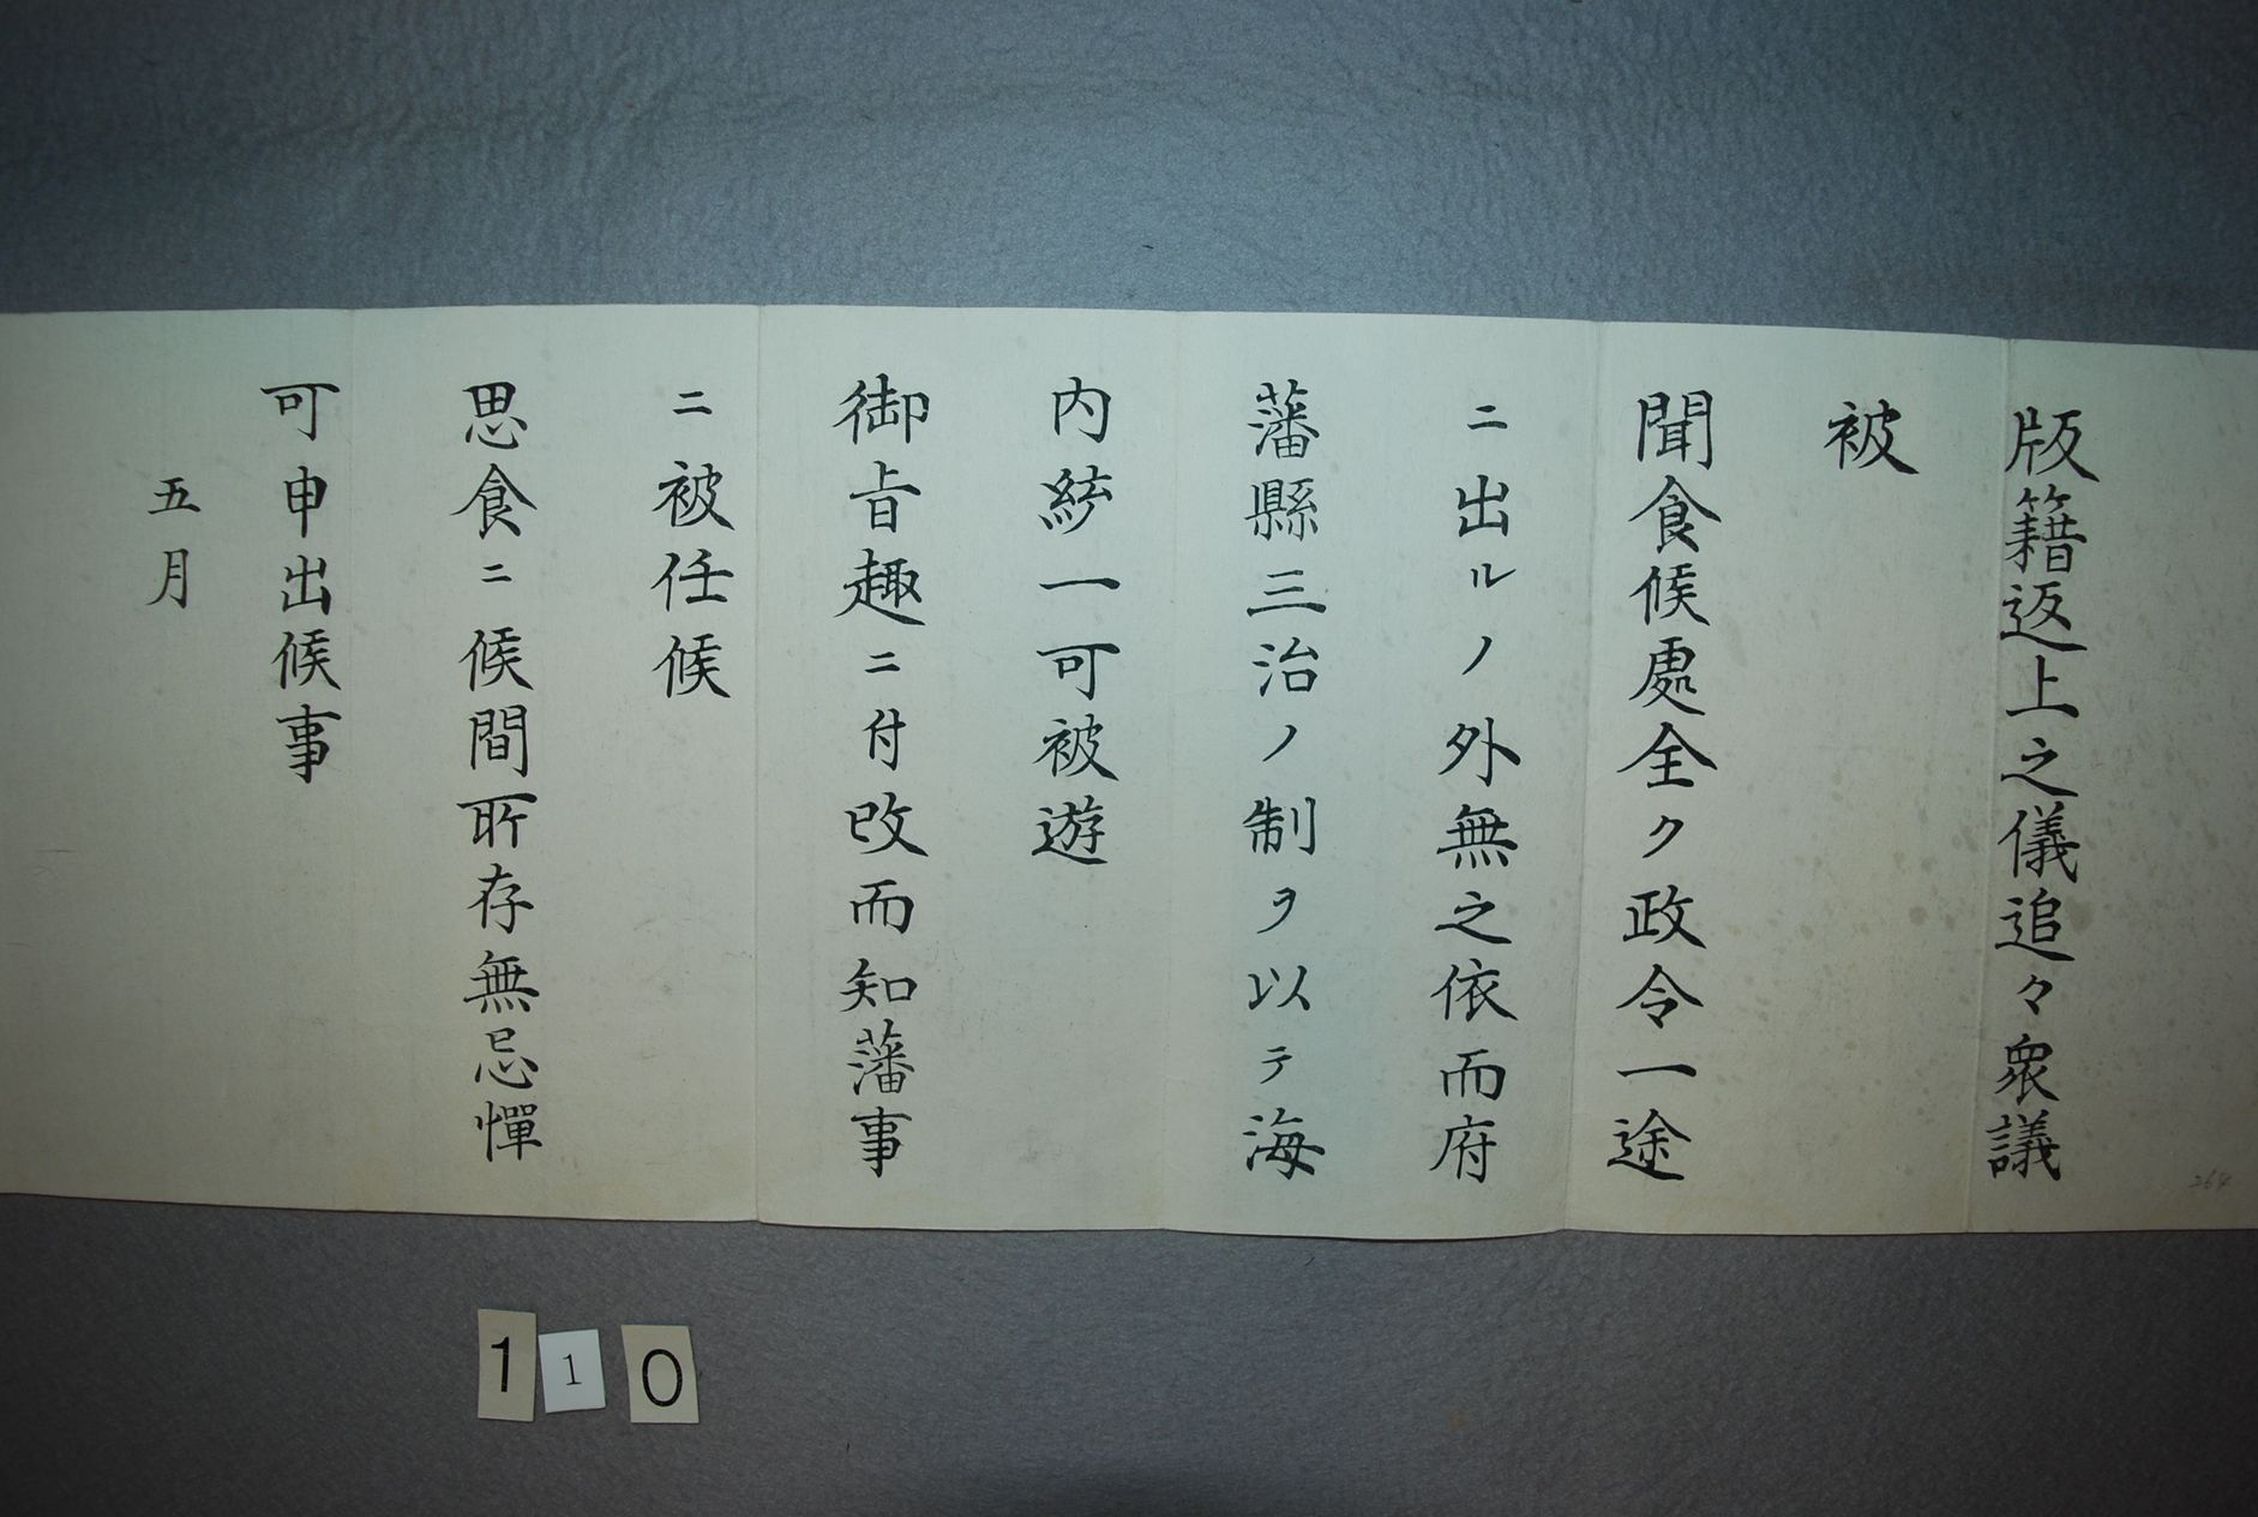 版籍返上之儀追々衆議
被
聞食候處全ク政令一途
ニ出ルノ外無之依而府
藩縣三治ノ制ヲ以テ海
内統一可被遊
御旨趣ニ付改而知藩事
ニ被任候
思食ニ候間所存無忌憚
可申出候事
五月
1 1 0